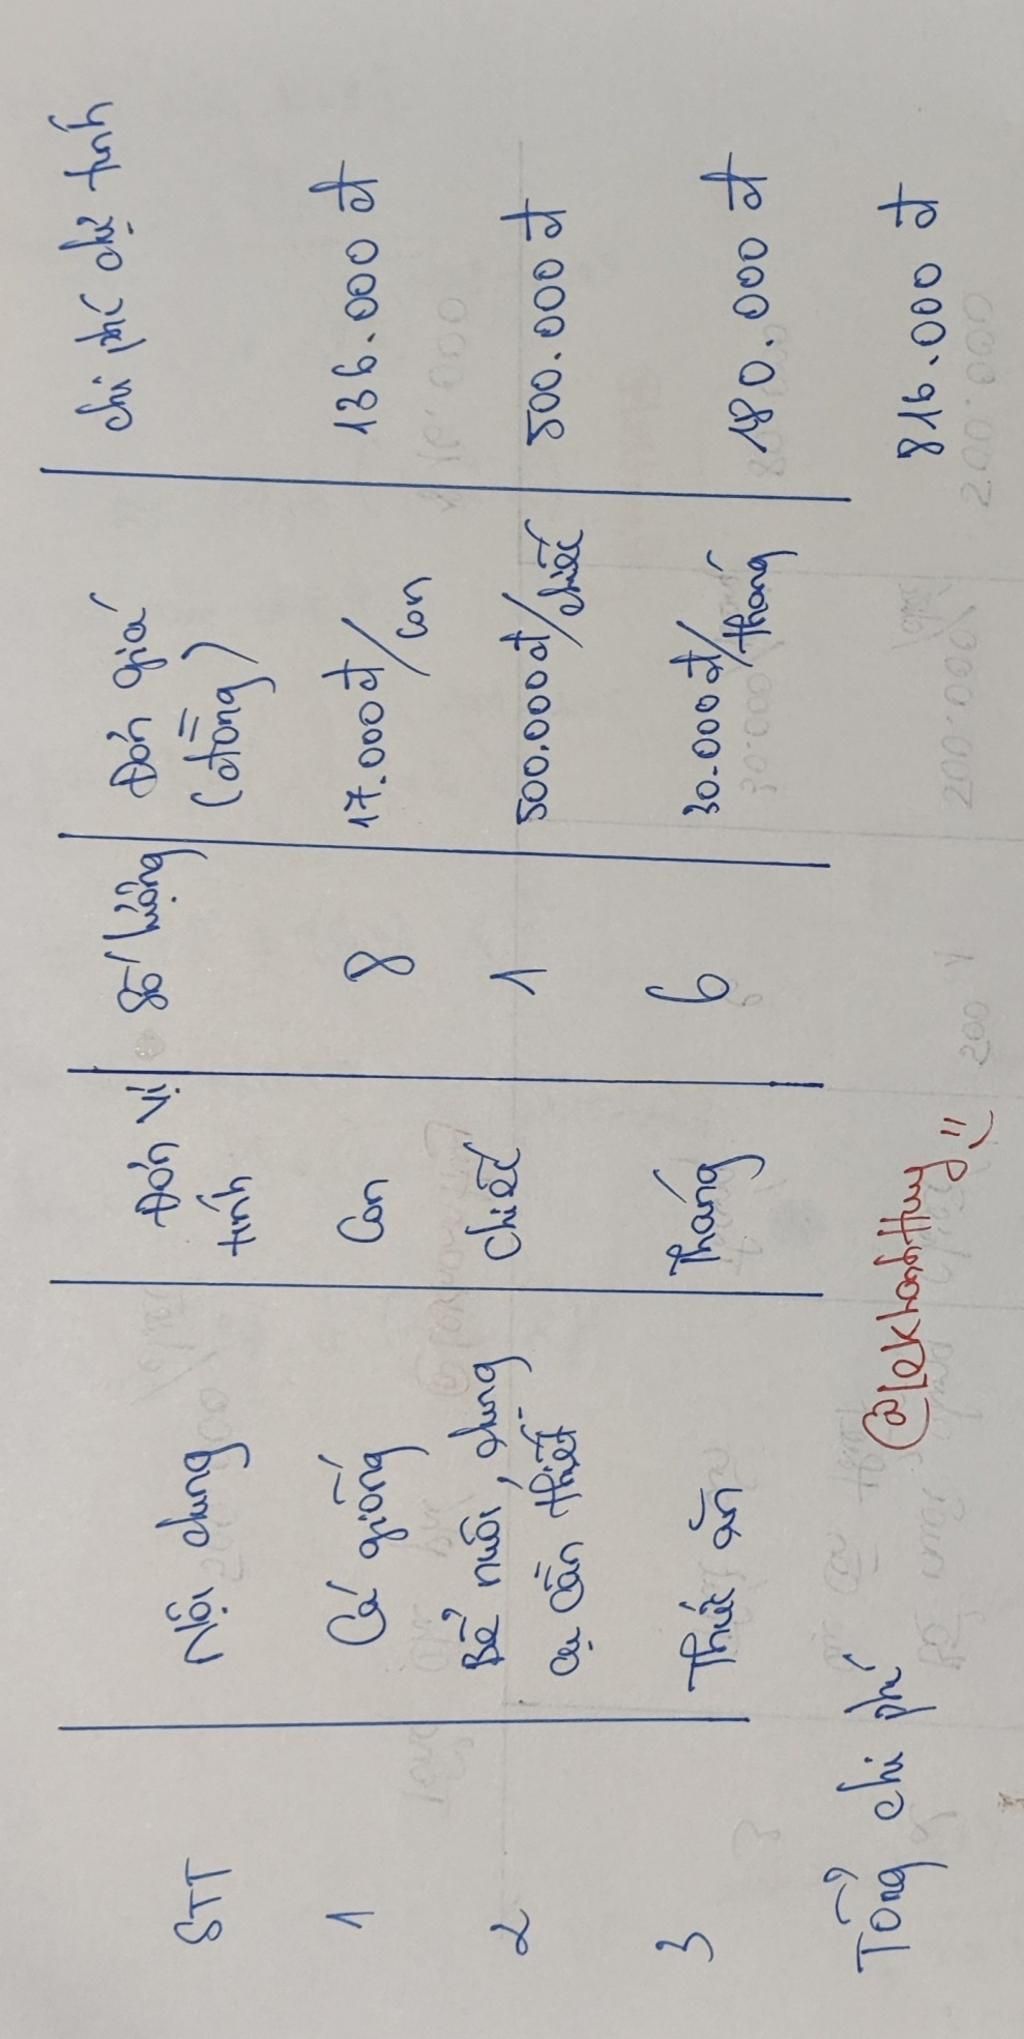 STT Nội dung Đơn vị tính Số lượng Đơn giá (đồng) Chi phí dự tính
1 Cá giống Con 8 17.000đ/con 136.000 đ
2 Bể nuôi, dụng cụ cần thiết Chiếc 1 500.000đ/chiếc 500.000 đ
3 Thức ăn Tháng 6 30.000đ/tháng 180.000 đ
Tổng chi phí 816.000 đ
@lekhanhHuy